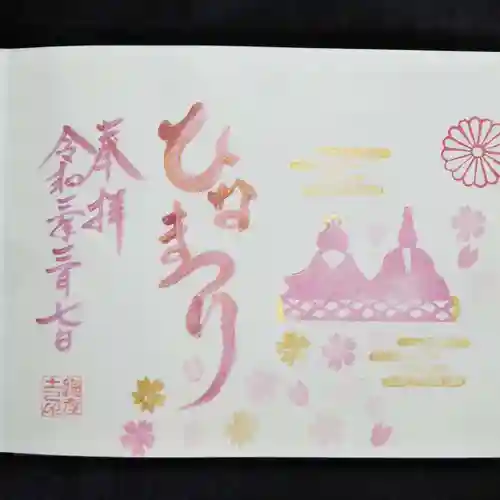 ひなまつり
奉拝
令和三年三月七日